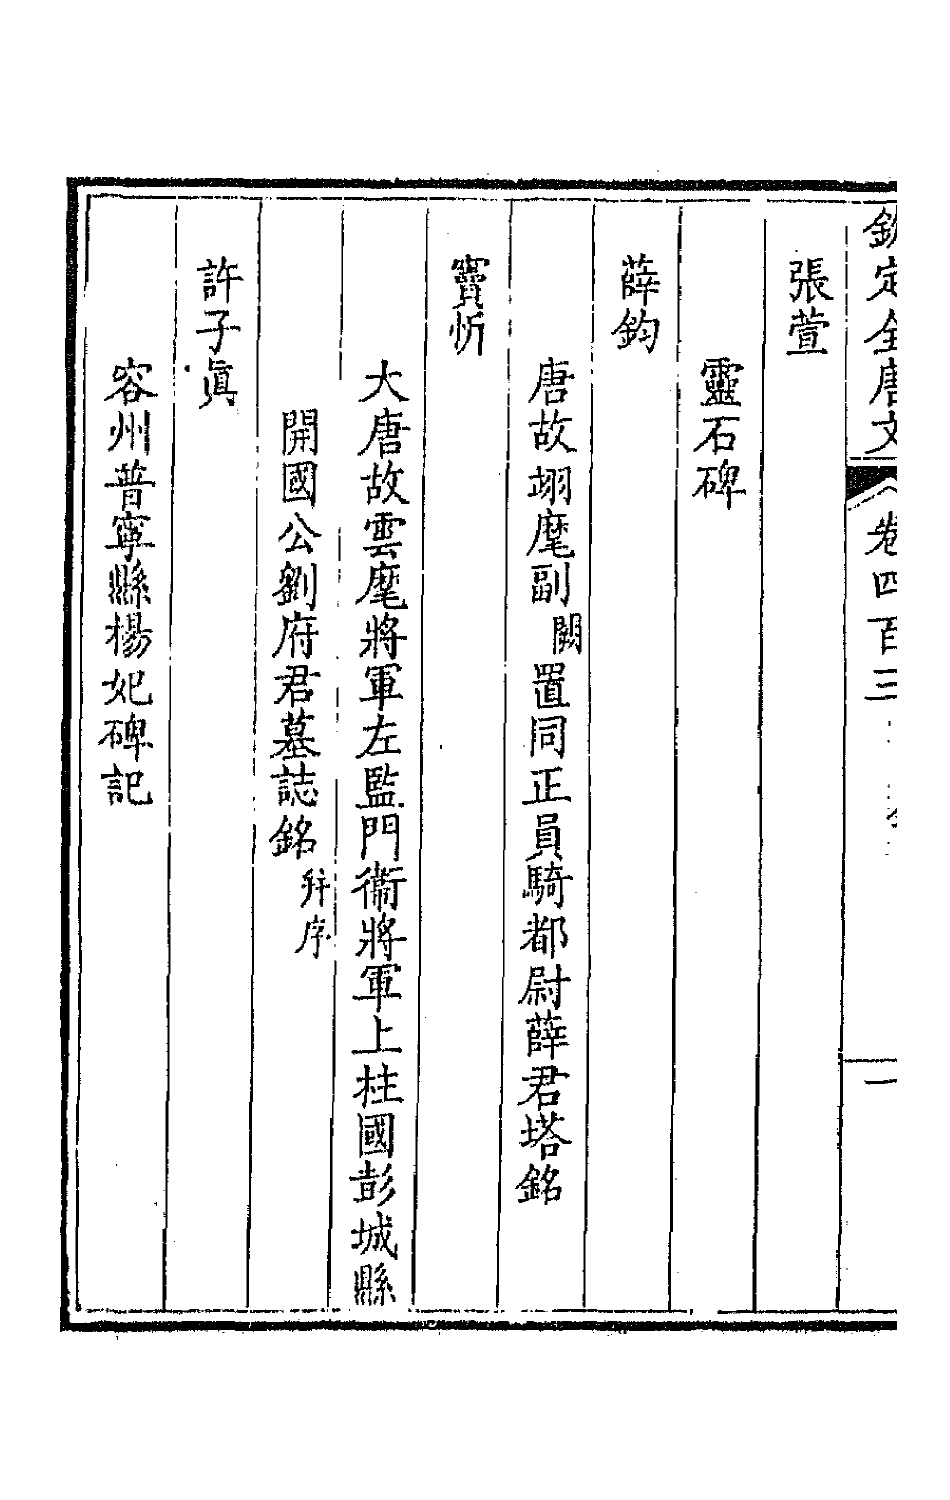 欽定全唐文 卷四百三 目 一
張萱
靈石碑
薛鈞
唐故翊麾副闕置同正員騎都尉薛君塔銘
竇忻
大唐故雲麾將軍左監門衞將軍上柱國彭城縣
開國公劉府君墓誌銘幷序
許子眞
容州普寧縣楊妃碑記